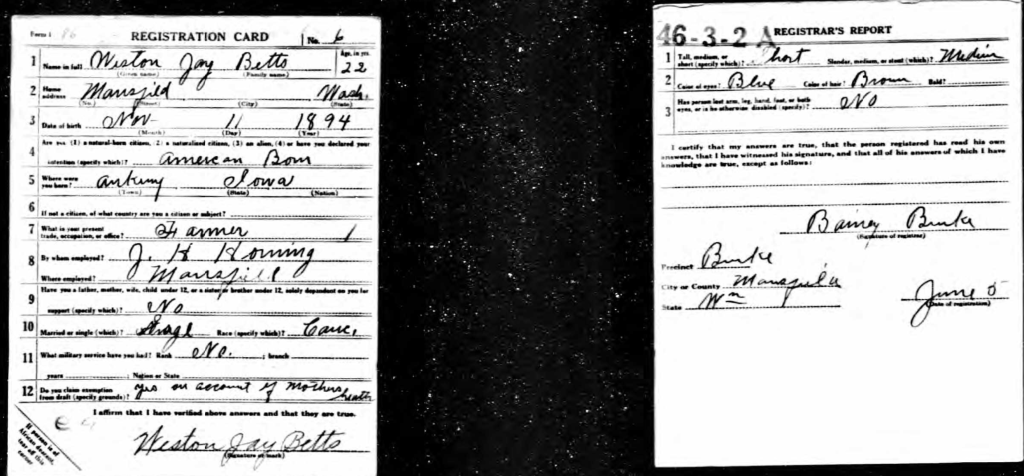 Form 1 REGISTRATION CARD No. 6
1 Name in full Weston Jay Betts Age, in yrs. 22
(Given name) (Family name)
2 Home address Mansfield Wash.
(No.) (Street) (City) (State)
3 Date of birth Nov 11 1894
(Month) (Day) (Year)
4 Are you (1) a natural-born citizen, (2) a naturalized citizen, (3) an alien, (4) or have you declared your
intention (specify which)? American Born
5 Where were you born? Ankeny Iowa
(Town) (State) (Nation)
6 If not a citizen, of what country are you a citizen or subject?
7 What is your present trade, occupation, or office? Farmer 1
8 By whom employed? J. H Horning
Where employed? Mansfield
9 Have you a father, mother, wife, child under 12, or a sister or brother under 12, solely dependent on you for
support (specify which)? No
10 Married or single (which)? Singl Race (specify which)? Cauc.
11 What military service have you had? Rank No. ; branch
years ; Nation or State
12 Do you claim exemption from draft (specify grounds)? yes on account of Mothers health
I affirm that I have verified above answers and that they are true.
Weston Jay Betts
(Signature or mark)
If person is of
African descent,
tear off this
corner
46-3-2 A REGISTRAR'S REPORT
1 Tall, medium, or short (specify which)? Short Slender, medium, or stout (which)? Medium
2 Color of eyes? Blue Color of hair? Brown Bald?
3 Has person lost arm, leg, hand, foot, or both
eyes, or is he otherwise disabled (specify)? No
I certify that my answers are true, that the person registered has read his own
answers, that I have witnessed his signature, and that all of his answers of which I have
knowledge are true, except as follows:
Burke
(Signature of registrar)
Precinct Burke
City or County Mansfield
State Wn June 5
(Date of registration)